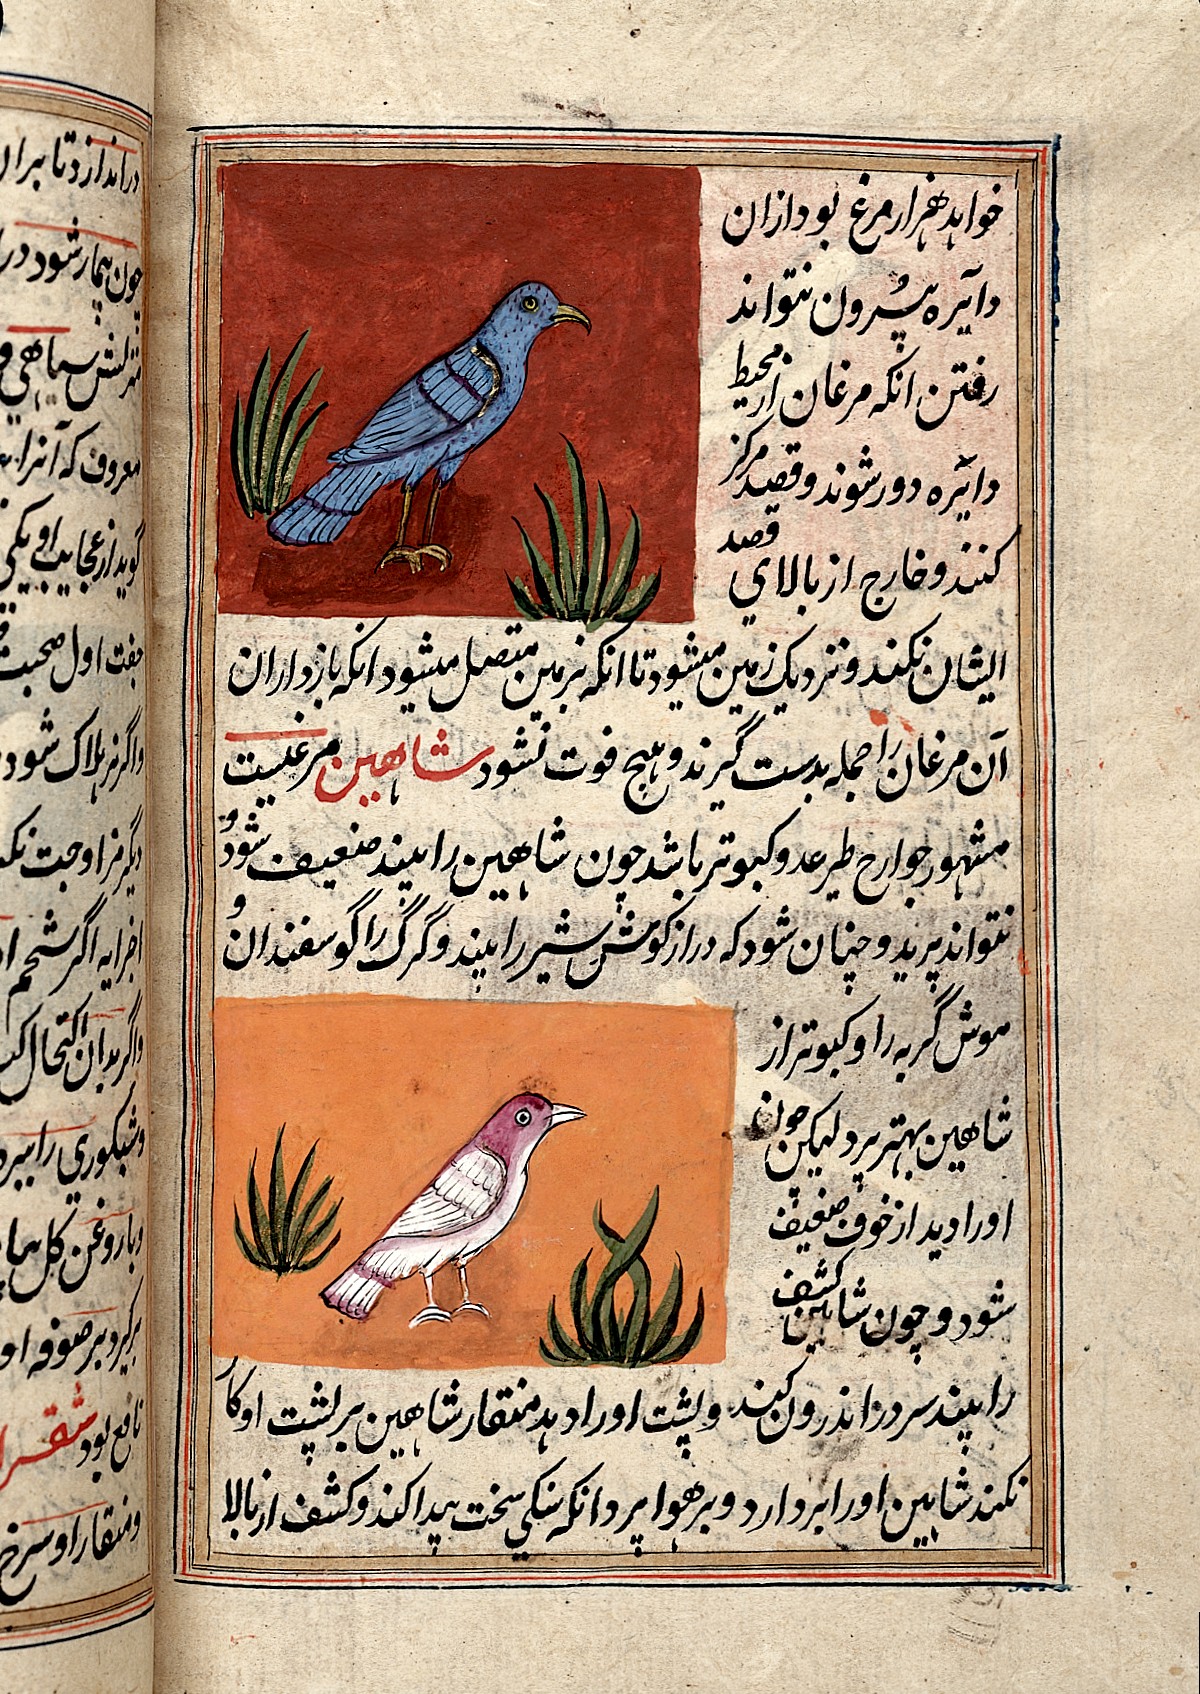 خواهد هزار مرغ بود ازان
دایره بیرون نتواند
رفتن انکه مرغان از محیط
دایره دور شوند و قصد مرکز
کنند و خارج از بالای قصد
ایشان نکند و نزدیک زمین میشود تا انکه بزمین متصل میشود انکه بازداران
آن مرغان را جمله بدست گیرند و هیچ فوت نشود شاهین مرغیست
مشهور جوارح طیر عدو کبوتر باشد چون شاهین را بیند ضعیف شود و
نتواند پرید و چنان شود که دراز کوش شیر را بیند و گرگ را گوسفندان و
موش گربه را و کبوتر از
شاهین بهتر پرد لیکن چون
اورا دید از خوف ضعیف
شود و چون شاهین کشف
را بیند سر در اندرون کند و پشت اورا دهد منقار شاهین بر پشت او کار
نکند شاهین اورا بردارد و بر هوا پرد انکه سنکی سخت پیدا کند و کشف از بالا
در اندازد تا بران
چون بیمار شود
معروف که آنرا
گوید از عجایب او یکی
جفت اول صحبت
واگر نر هلاک شود
دیگر مر او جفت
اگر شحم
واگر بدان اکتحال
وشبکوری را ببرد
وبا روغن کل
نافع بود
ومنقار او سرخ